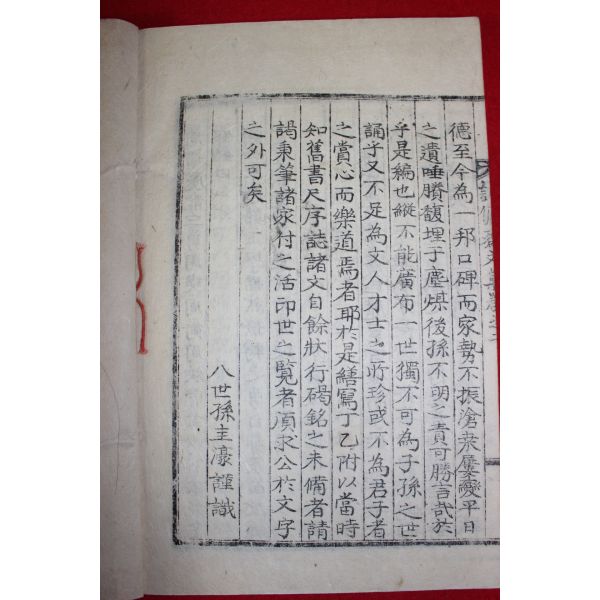 德至今為一邦口碑而家勢不振滄桑屢變平日
之遺唾賸馥埋于塵煤後孫不明之責可勝言哉於
乎是編也縱不能廣布一世獨不可為子孫之世
誦乎又不足為文人才士之所珍或不為君子者
之賞心而樂道焉者耶於是繕寫丁乙附以當時
知舊書尺序誌諸文自餘狀行碣銘之未備者請
謁秉筆諸家付之活印世之覽者須求公於文字
之外可矣
八世孫圭濠謹識